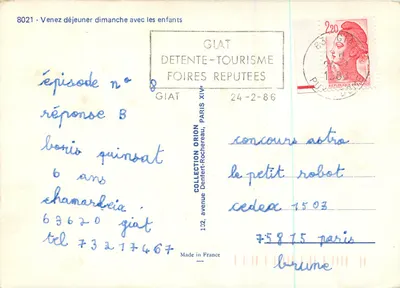 8021 - Venez déjeuner dimanche avec les enfants
GIAT
DETENTE-TOURISME
FOIRES REPUTEES
GIAT 24-2-86
2,20
épisode n° 8
réponse B
boris quinsat
6 ans
63620 giat
tel 73217467
COLLECTION ORION
132, avenue Denfert-Rochereau, PARIS XIVe
Made in France
concours astro
le petit robot
cedex 1503
75815 paris
brune